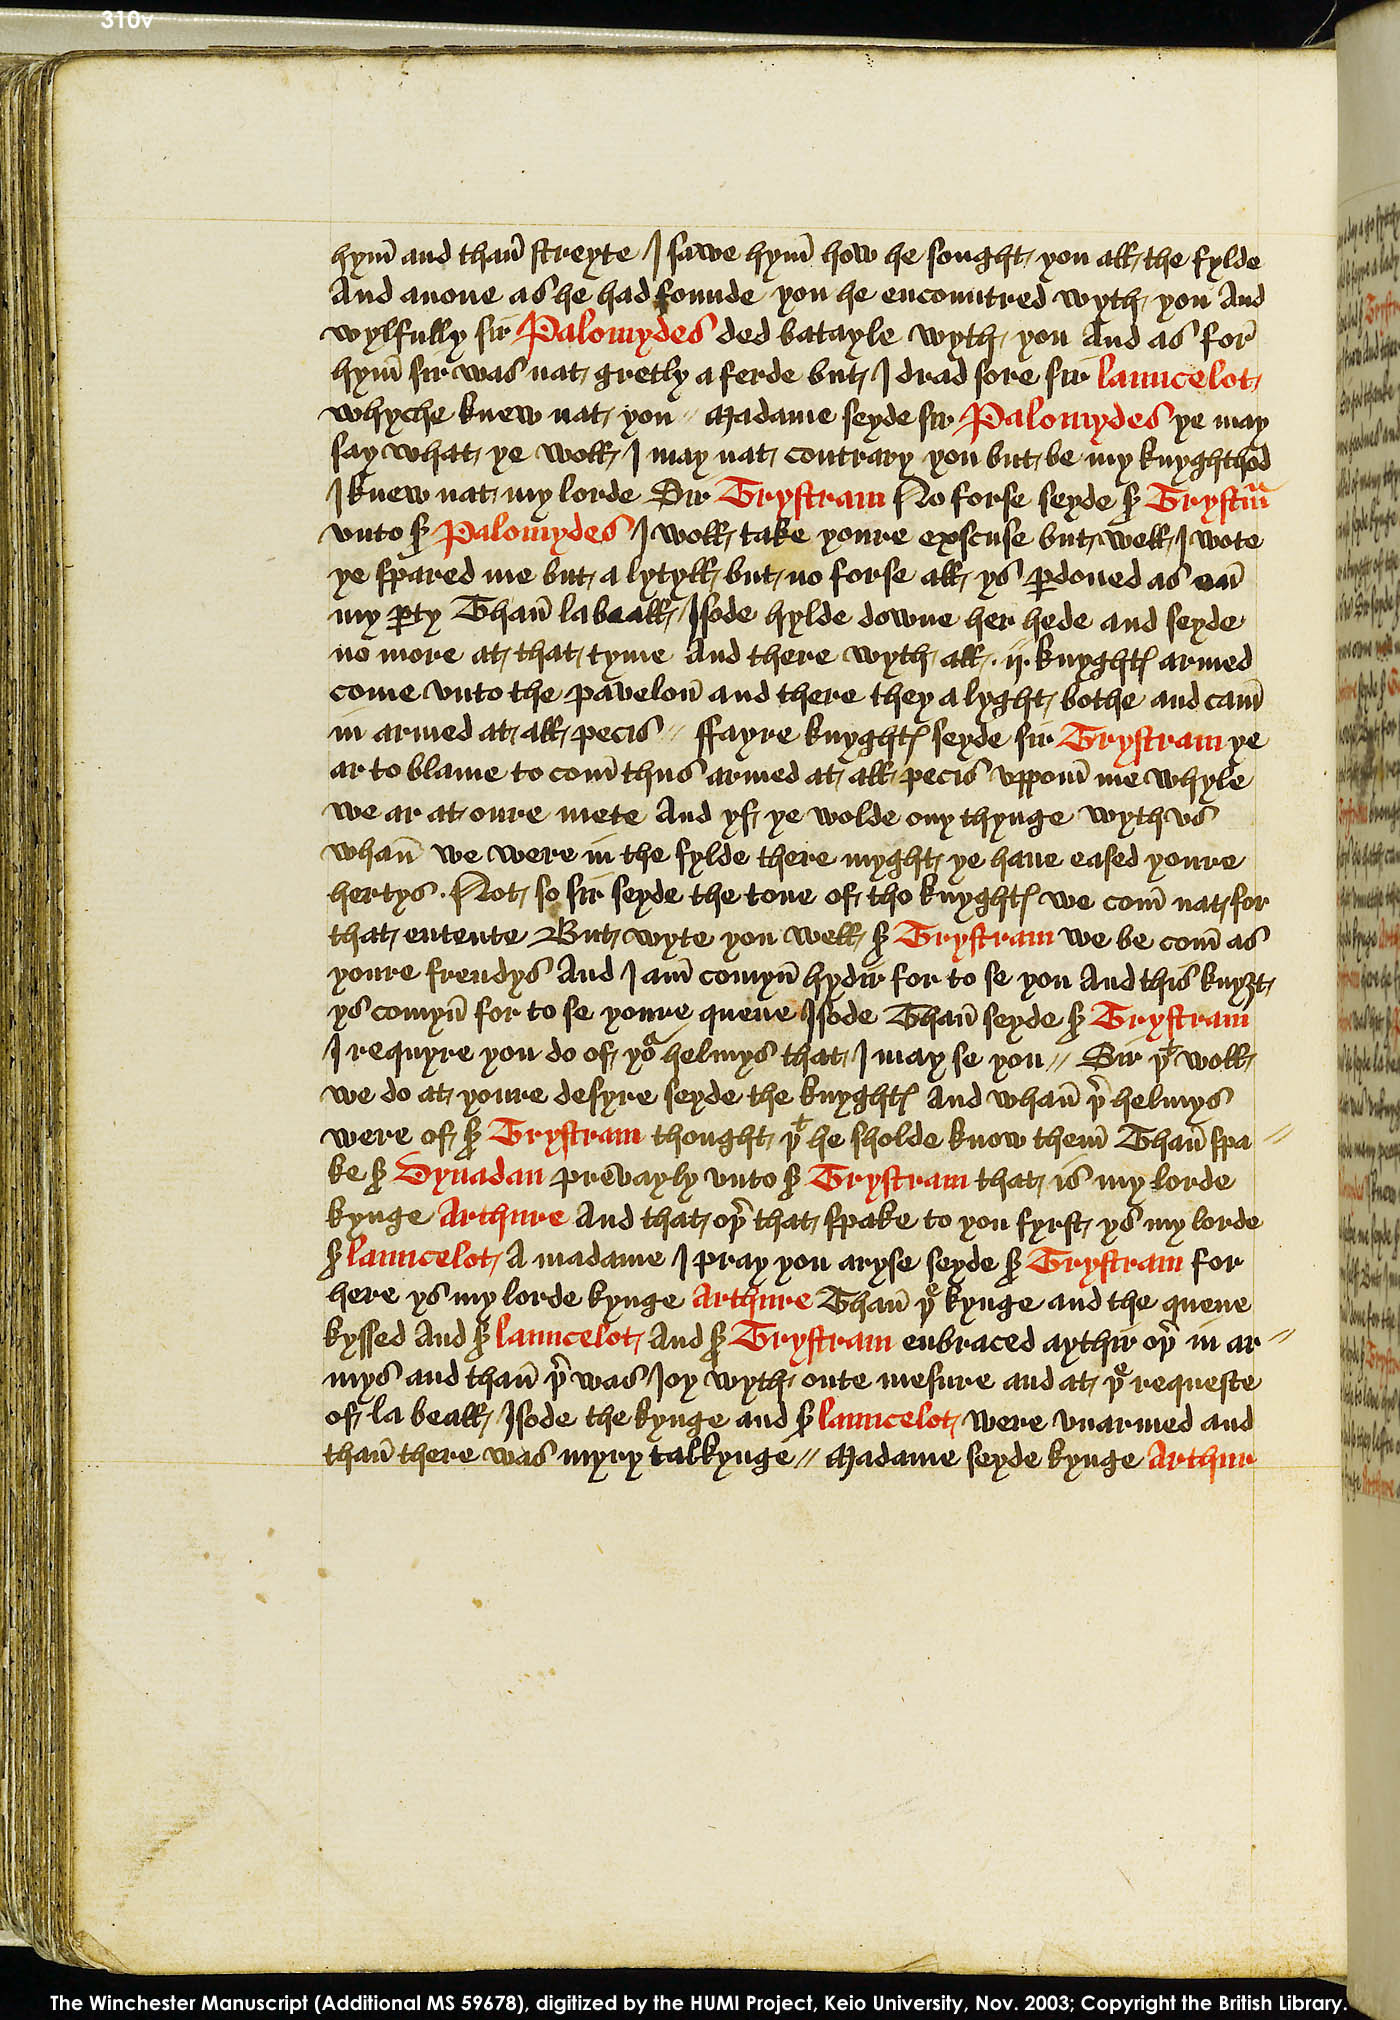 310v
hym̄ and than̄ streyte I sawe hym̄ how he sought you all the fylde
And anone as he had founde you he encountred wyth you And
wylfully sir Palomydes ded batayle wyth you And as for̄
hym̄ sir was nat gretly a ferde but I drad sore sir launcelot
whyche knew nat you // Madame seyde sir Palomydes ye may
say what ye woll I may nat contrary you but be my knyghthod
I knew nat my lorde Sir Trystram No forse seyde ẜ Trystm̄
vnto ẜ Palomydes I woll take youre exscuse but well I wote
ye spared me but a lytyll but no forse all ys ꝑdoned as on̄
my ꝑty Than̄ la beall Isode hylde downe her hede and seyde
no more at that tyme And there wyth all · ij · knyghtꝭ armed
come vnto the pavelon̄ and there they a lyght bothe and cam̄
in armed at all pecis // ffayre knyghtꝭ seyde sir Trystram ye
ar to blame to com̄ thus armed at all pecis vppon̄ me whyle
we ar at oure mete And yf ye wolde ony thynge wyth vs
whan̄ we were in the fylde there myght ye haue eased youre
hertys · Not so sir seyde the tone of tho knyghtꝭ we com̄ nat for
that entente But wyte you well ẜ Trystram we be com̄ as
youre frendys And I am̄ comyn̄ hydir for to se you And this knyȝt
ys comyn̄ for to se youre quene Isode Than̄ seyde ẜ Trystram
I requyre you do of yoᷓ helmys that I may se you // Sir þᵗ woll
we do at youre desyre seyde the knyghtꝭ And whan̄ þr̄ helmys
were of ẜ Trystram thought þᵗ he sholde know them̄ Than̄ spa //
ke ẜ Dynadan prevayly vnto ẜ Trystram that is my lorde
kynge Arthure And that oþr̄ that spake to you fyrst ys my lorde
ẜ launcelot A madame I pray you aryse seyde ẜ Trystram for
here ys my lorde kynge Arthure Than̄ þᵉ kynge and the quene
kyssed And ẜ launcelot And ẜ Trystram enbraced aythir oþr̄ in ar //
mys and than̄ þr̄ was Ioy wyth oute mesure and at þᵉ requeste
of la beall Isode the kynge and ẜ launcelot were vnarmed and
than̄ there was myry talkynge // Madame seyde kynge Arthur
The Winchester Manuscript (Additional MS 59678), digitized by the HUMI Project, Keio University, Nov. 2003; Copyright the British Library.